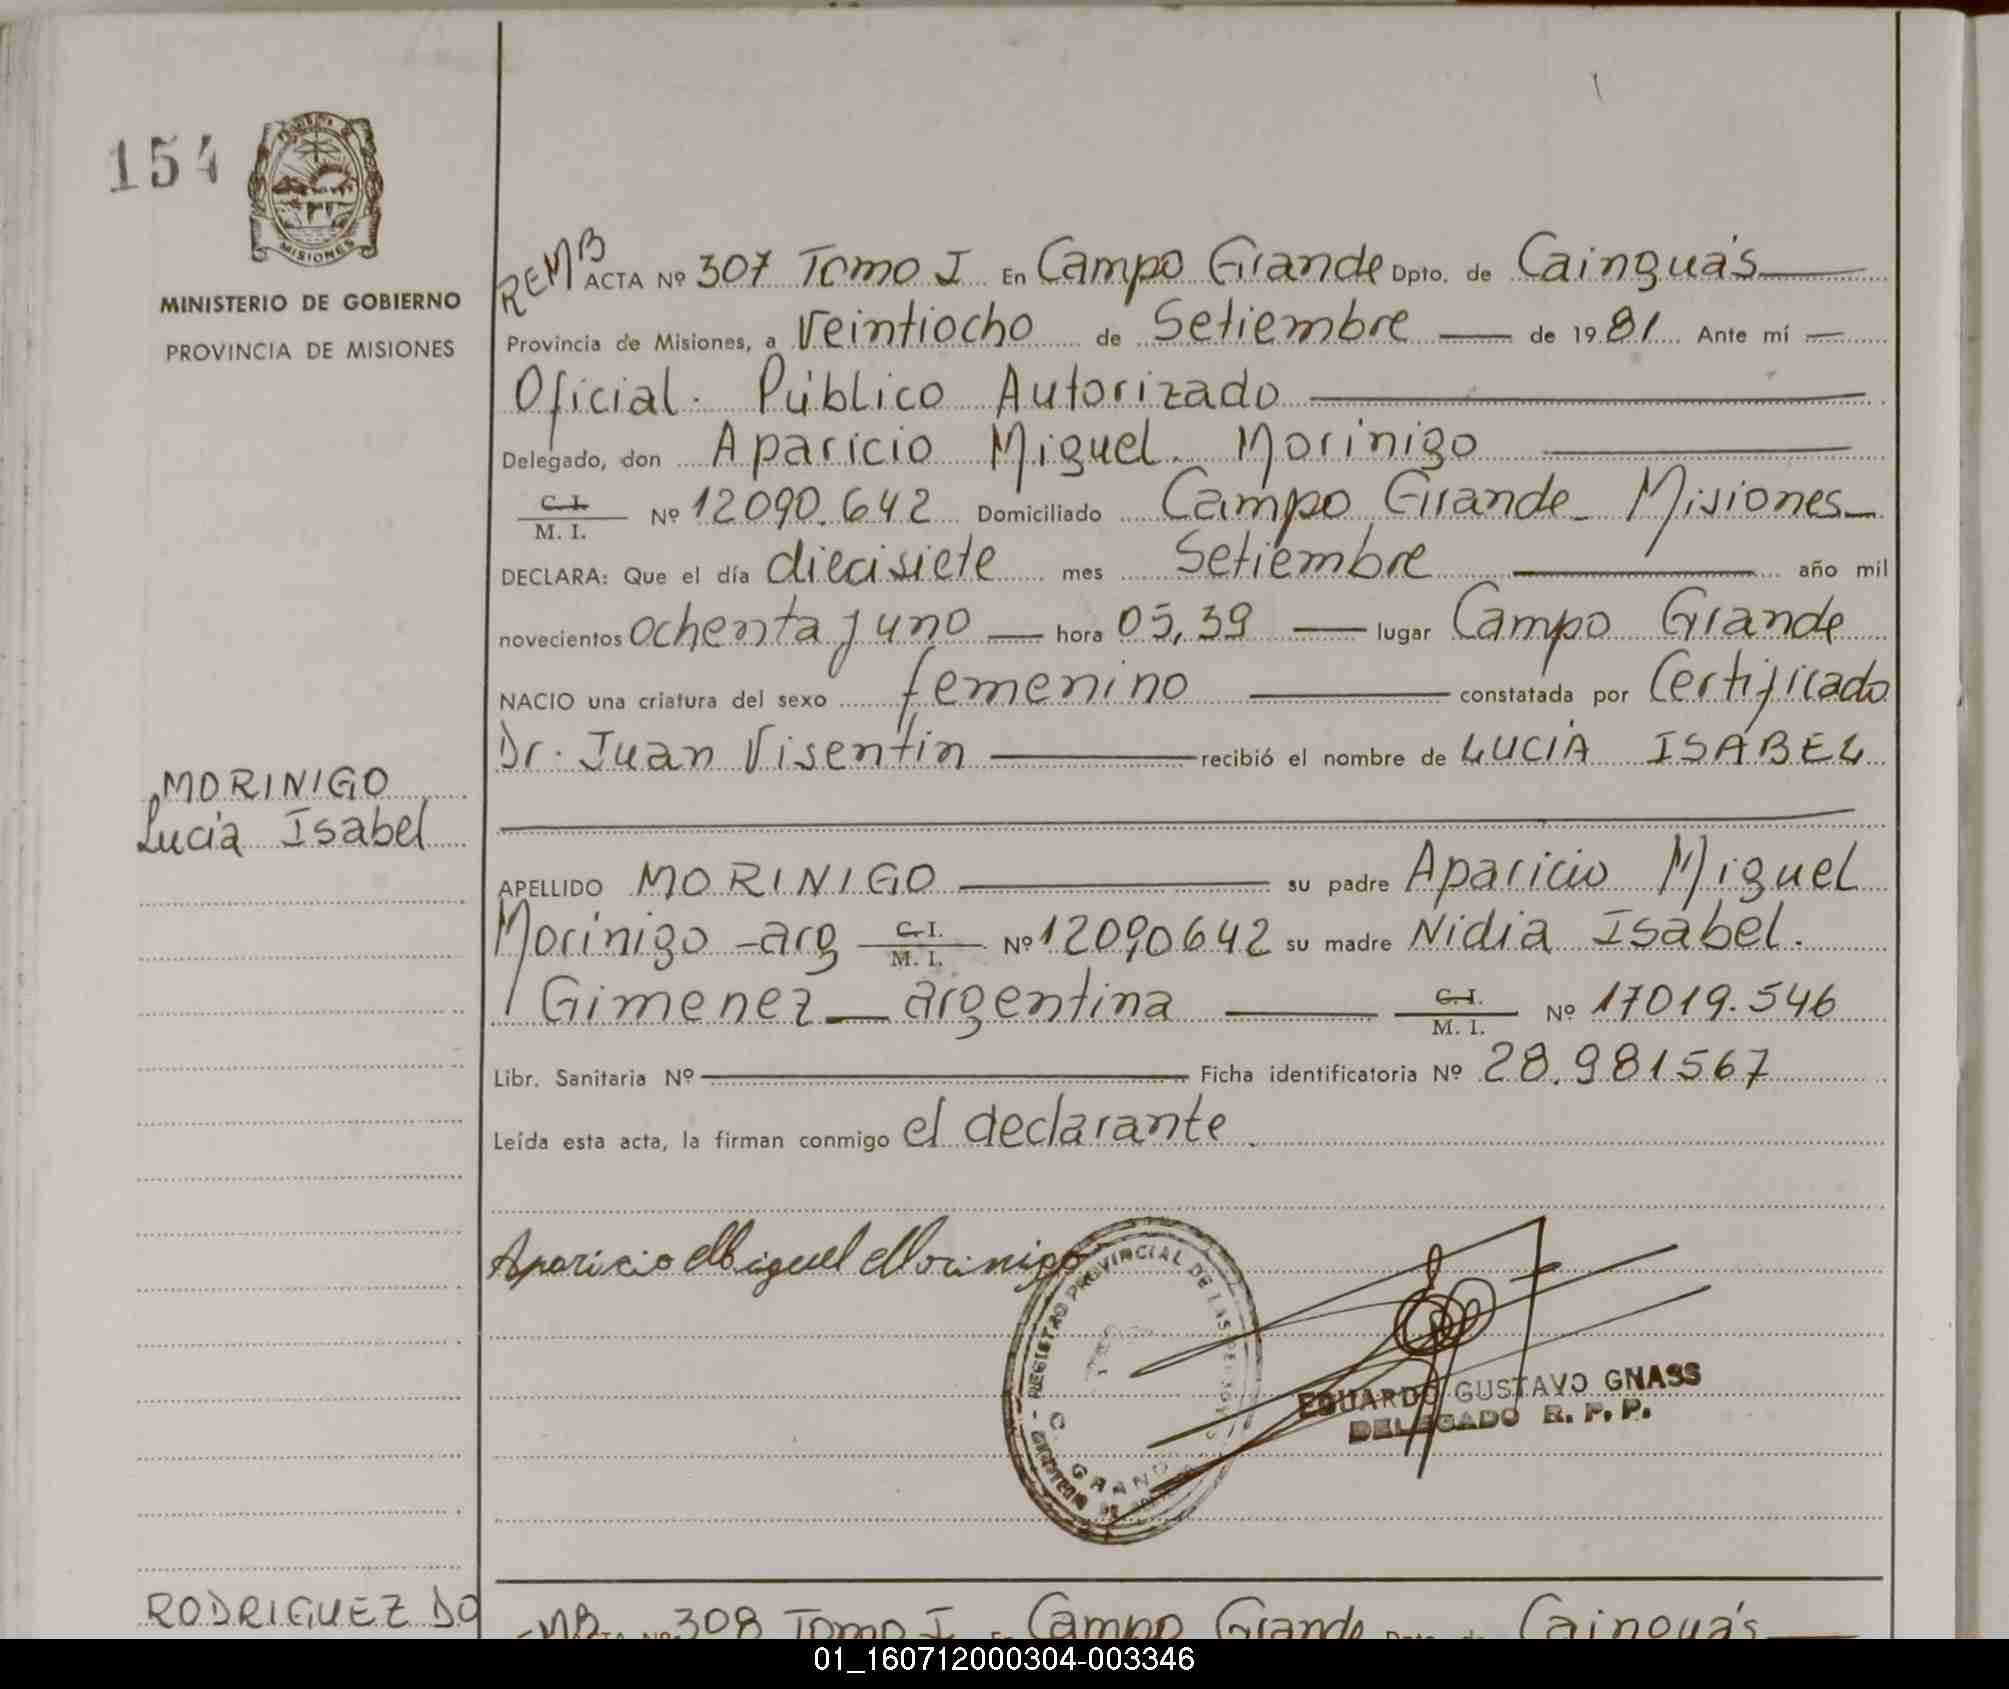 154
MISIONES
MINISTERIO DE GOBIERNO
PROVINCIA DE MISIONES
MORINIGO
Lucía Isabel
REMB ACTA Nº 307 Tomo I En Campo Grande Dpto. de Cainguás
Provincia de Misiones, a Veintiocho de Setiembre de 1981 Ante mí
Oficial Público Autorizado
Delegado, don Aparicio Miguel Morinigo
C. I. M. I. Nº 12090.642 Domiciliado Campo Grande - Misiones
DECLARA: Que el día diecisiete mes Setiembre año mil
novecientos ochenta y uno hora 05,39 lugar Campo Grande
NACIO una criatura del sexo femenino constatada por Certificado
Dr. Juan Visentin recibió el nombre de LUCIA ISABEL
APELLIDO MORINIGO su padre Aparicio Miguel
Morinigo - arg C. I. M. I. Nº 12090642 su madre Nidia Isabel.
Gimenez - argentina C. I. M. I. Nº 17019.546
Libr. Sanitaria Nº Ficha identificatoria Nº 28.981567
Leída esta acta, la firman conmigo el declarante.
Aparicio Miguel Morinigo
REGISTRO PROVINCIAL DE LAS
EDUARDO GUSTAVO GNASS
DELEGADO R. P. P.
RODRIGUEZ DO
308 Tomo I Campo Grande Cainguás
01_160712000304-003346